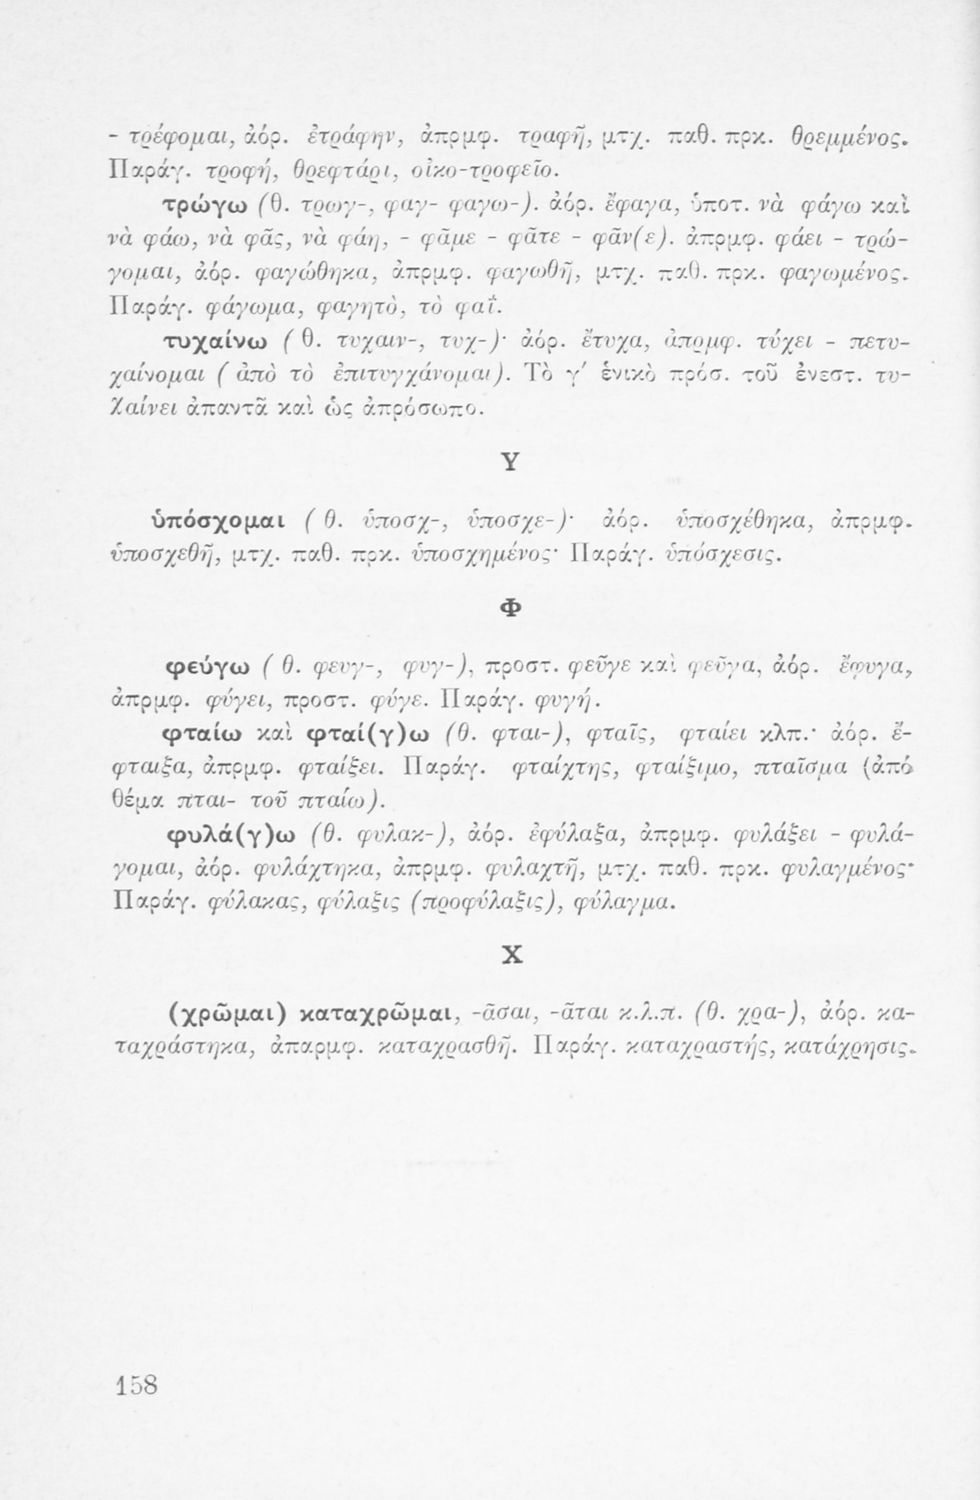 - τρέφομαι, ἀόρ. ἐτράφην, ἀπρμφ. τραφῆ, μτχ. παθ. πρκ. θρεμμένος.
Παράγ. τροφή, θρεφτάρι, οἰκο-τροφεῖο.
τρώγω (θ. τρωγ-, φαγ- φαγω-). ἀόρ. ἔφαγα, ὑποτ. νὰ φάγω καὶ
νὰ φάω, νὰ φᾶς, νὰ φάη, - φᾶμε - φᾶτε - φᾶν(ε). ἀπρμφ. φάει - τρώ-
γομαι, ἀόρ. φαγώθηκα, ἀπρμφ. φαγωθῆ, μτχ. παθ. πρκ. φαγωμένος.
Παράγ. φάγωμα, φαγητὸ, τὸ φαΐ.
τυχαίνω ( θ. τυχαιν-, τυχ-)· ἀόρ. ἔτυχα, ἀπρμφ. τύχει - πετυ-
χαίνομαι ( ἀπὸ τὸ ἐπιτυγχάνομαι). Τὸ γ' ἑνικὸ πρόσ. τοῦ ἐνεστ. τυ-
χαίνει ἀπαντᾶ καὶ ὡς ἀπρόσωπο.
Υ
ὑπόσχομαι ( θ. ὑποσχ-, ὑποσχε-)· ἀόρ. ὑποσχέθηκα, ἀπρμφ.
ὑποσχεθῆ, μτχ. παθ. πρκ. ὑποσχημένος· Παράγ. ὑπόσχεσις.
Φ
φεύγω ( θ. φευγ-, φυγ-), προστ. φεῦγε καὶ φεῦγα, ἀόρ. ἔφυγα,
ἀπρμφ. φύγει, προστ. φύγε. Παράγ. φυγή.
φταίω καὶ φταί(γ)ω (θ. φται-), φταῖς, φταίει κλπ.· ἀόρ. ἔ-
φταιξα, ἀπρμφ. φταίξει. Παράγ. φταίχτης, φταίξιμο, πταῖσμα (ἀπό
θέμα πται- τοῦ πταίω).
φυλά(γ)ω (θ. φυλακ-), ἀόρ. ἐφύλαξα, ἀπρμφ. φυλάξει - φυλά-
γομαι, ἀόρ. φυλάχτηκα, ἀπρμφ. φυλαχτῆ, μτχ. παθ. πρκ. φυλαγμένος·
Παράγ. φύλακας, φύλαξις (προφύλαξις), φύλαγμα.
Χ
(χρῶμαι) καταχρῶμαι, -ᾶσαι, -ᾶται κ.λ.π. (θ. χρα-), ἀόρ. κα-
ταχράστηκα, ἀπαρμφ. καταχρασθῆ. Παράγ. καταχραστής, κατάχρησις.
158